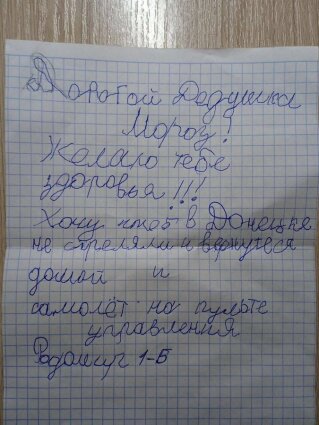 Дорогой Дедушка
Мороз!
Желаю тебе
здоровья!!!
Хочу чтоб в Донецке
не стреляли и вернутеся
домой и
самолёт на пульте
управления
Радомир 1-Б